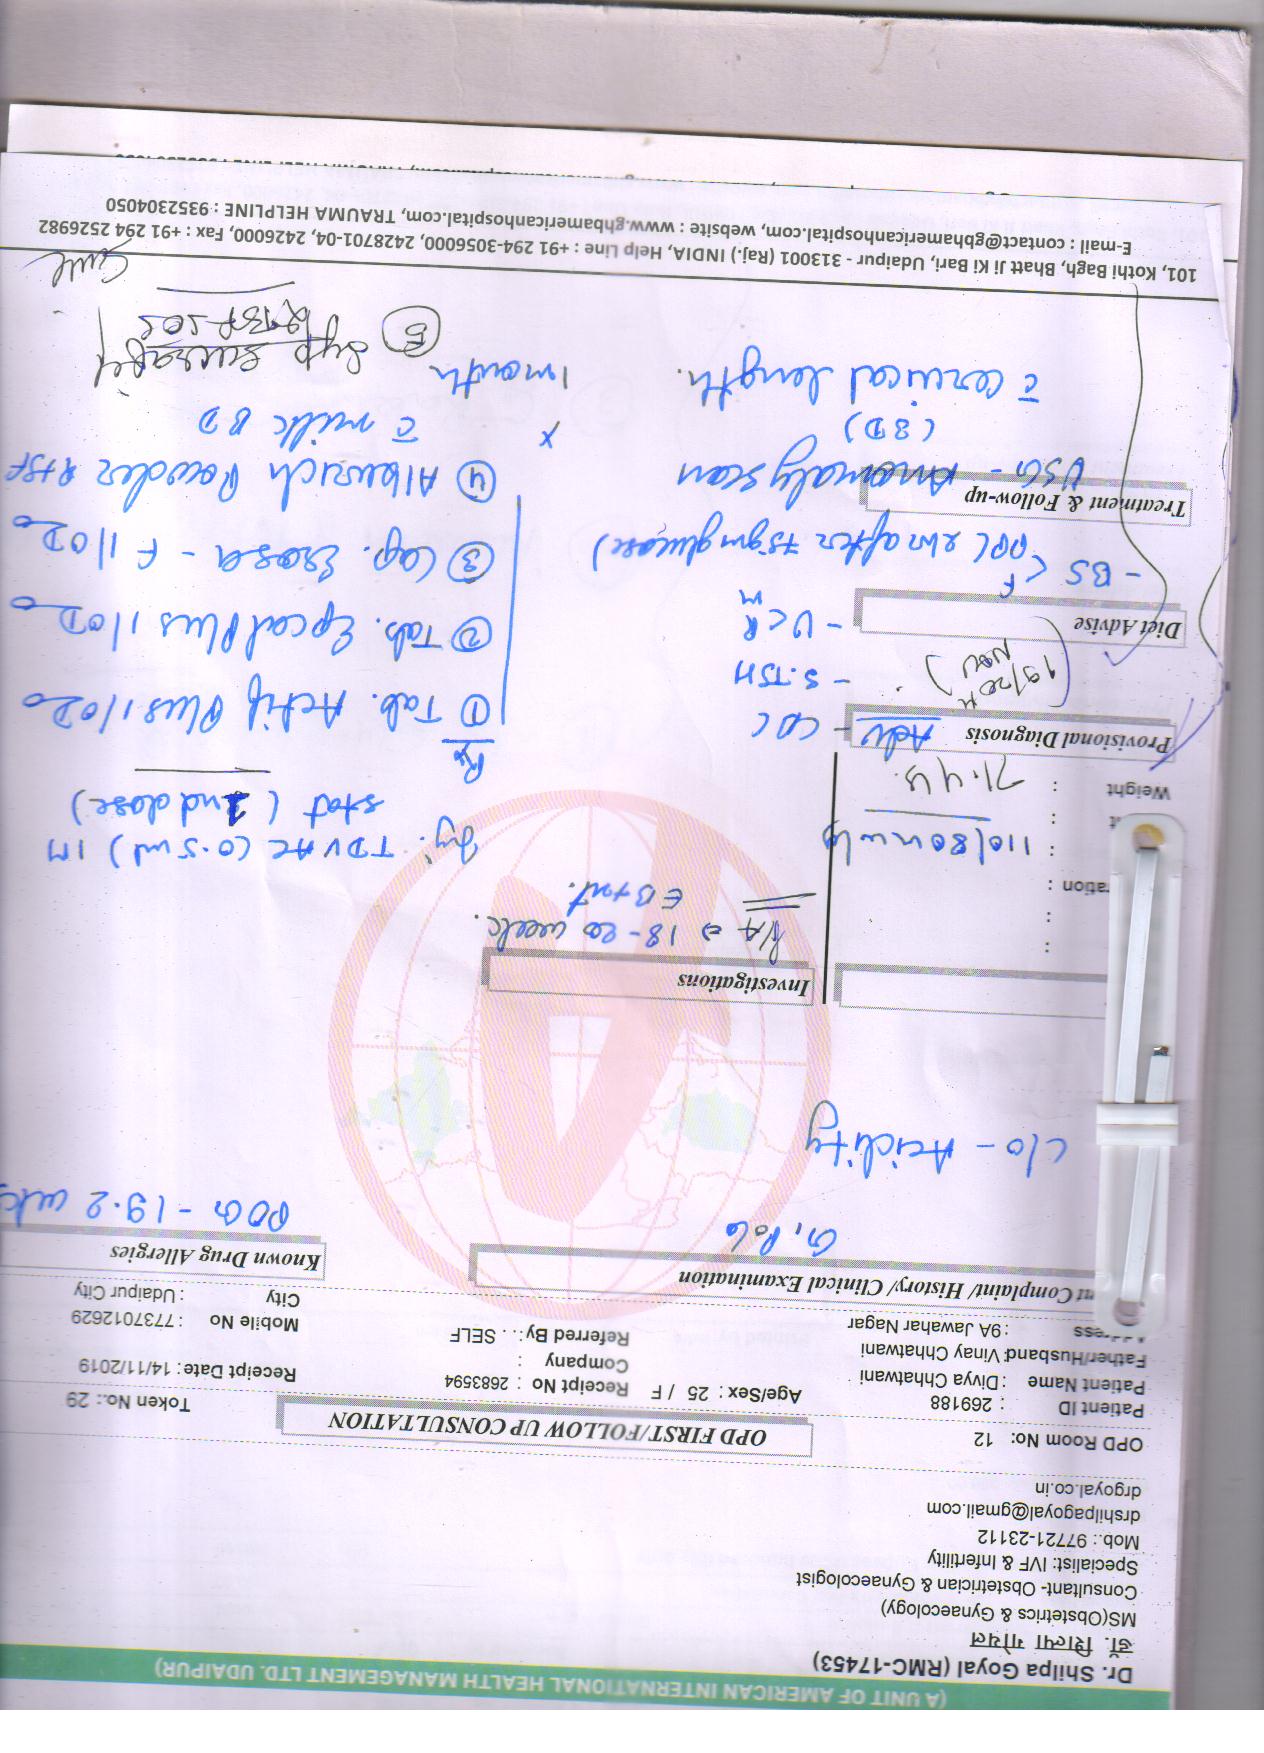 (A UNIT OF AMERICAN INTERNATIONAL HEALTH MANAGEMENT LTD. UDAIPUR)
Dr. Shilpa Goyal (RMC-17453)
डॉ. शिल्पा गोयल
MS(Obstetrics & Gynaecology)
Consultant- Obstetrician & Gynaecologist
Specialist: IVF & Infertility
Mob.: 97721-23112
drshilpagoyal@gmail.com
drgoyal.co.in
OPD Room No: 12
OPD FIRST/FOLLOW UP CONSULTATION
Token No.: 29
Patient ID : 269188
Patient Name : Divya Chhatwani
Age/Sex : 25 / F
Receipt No : 2683594
Receipt Date : 14/11/2019
Father/Husband: Vinay Chhatwani
Company :
: 9A Jawahar Nagar
Referred By: . . SELF
Mobile No : 7737012629
City : Udaipur City
nt Complaint/ History/ Clinical Examination
Known Drug Allergies
G1P0L0
POG - 19.2 wks
C/O - Acidity
Investigations
P/A ⇒ 18-20 week.
:
:
ration :
: 110/80 mmHg
Inj. TDVAC (0.5ml) IM
stat ( 2nd dose)
Weight : 71.4
Provisional Diagnosis
Adv - CBC
- S.TSH
- UCR
M
(19/20th
Nov)
Diet Advise
- BS < F
PPL 2hr after 75gm glucose)
Treatment & Follow-up
USG - Anomaly scan
(3D)
c̄ cervical length.
Rx
① Tab. Actif Plus 1/OD
② Tab. Epcal Plus 1/OD
③ Cap. - F 1/OD
④ Powder 2tsf
c̄ milk BD
x 1 month
⑤ Syp
2tsf sos
101, Kothi Bagh, Bhatt Ji Ki Bari, Udaipur - 313001 (Raj.) INDIA, Help Line : +91 294-3056000, 2428701-04, 2426000, Fax : +91 294 2526982
E-mail : contact@gbhamericanhospital.com, website : www.gbhamericanhospital.com, TRAUMA HELPLINE : 9352304050